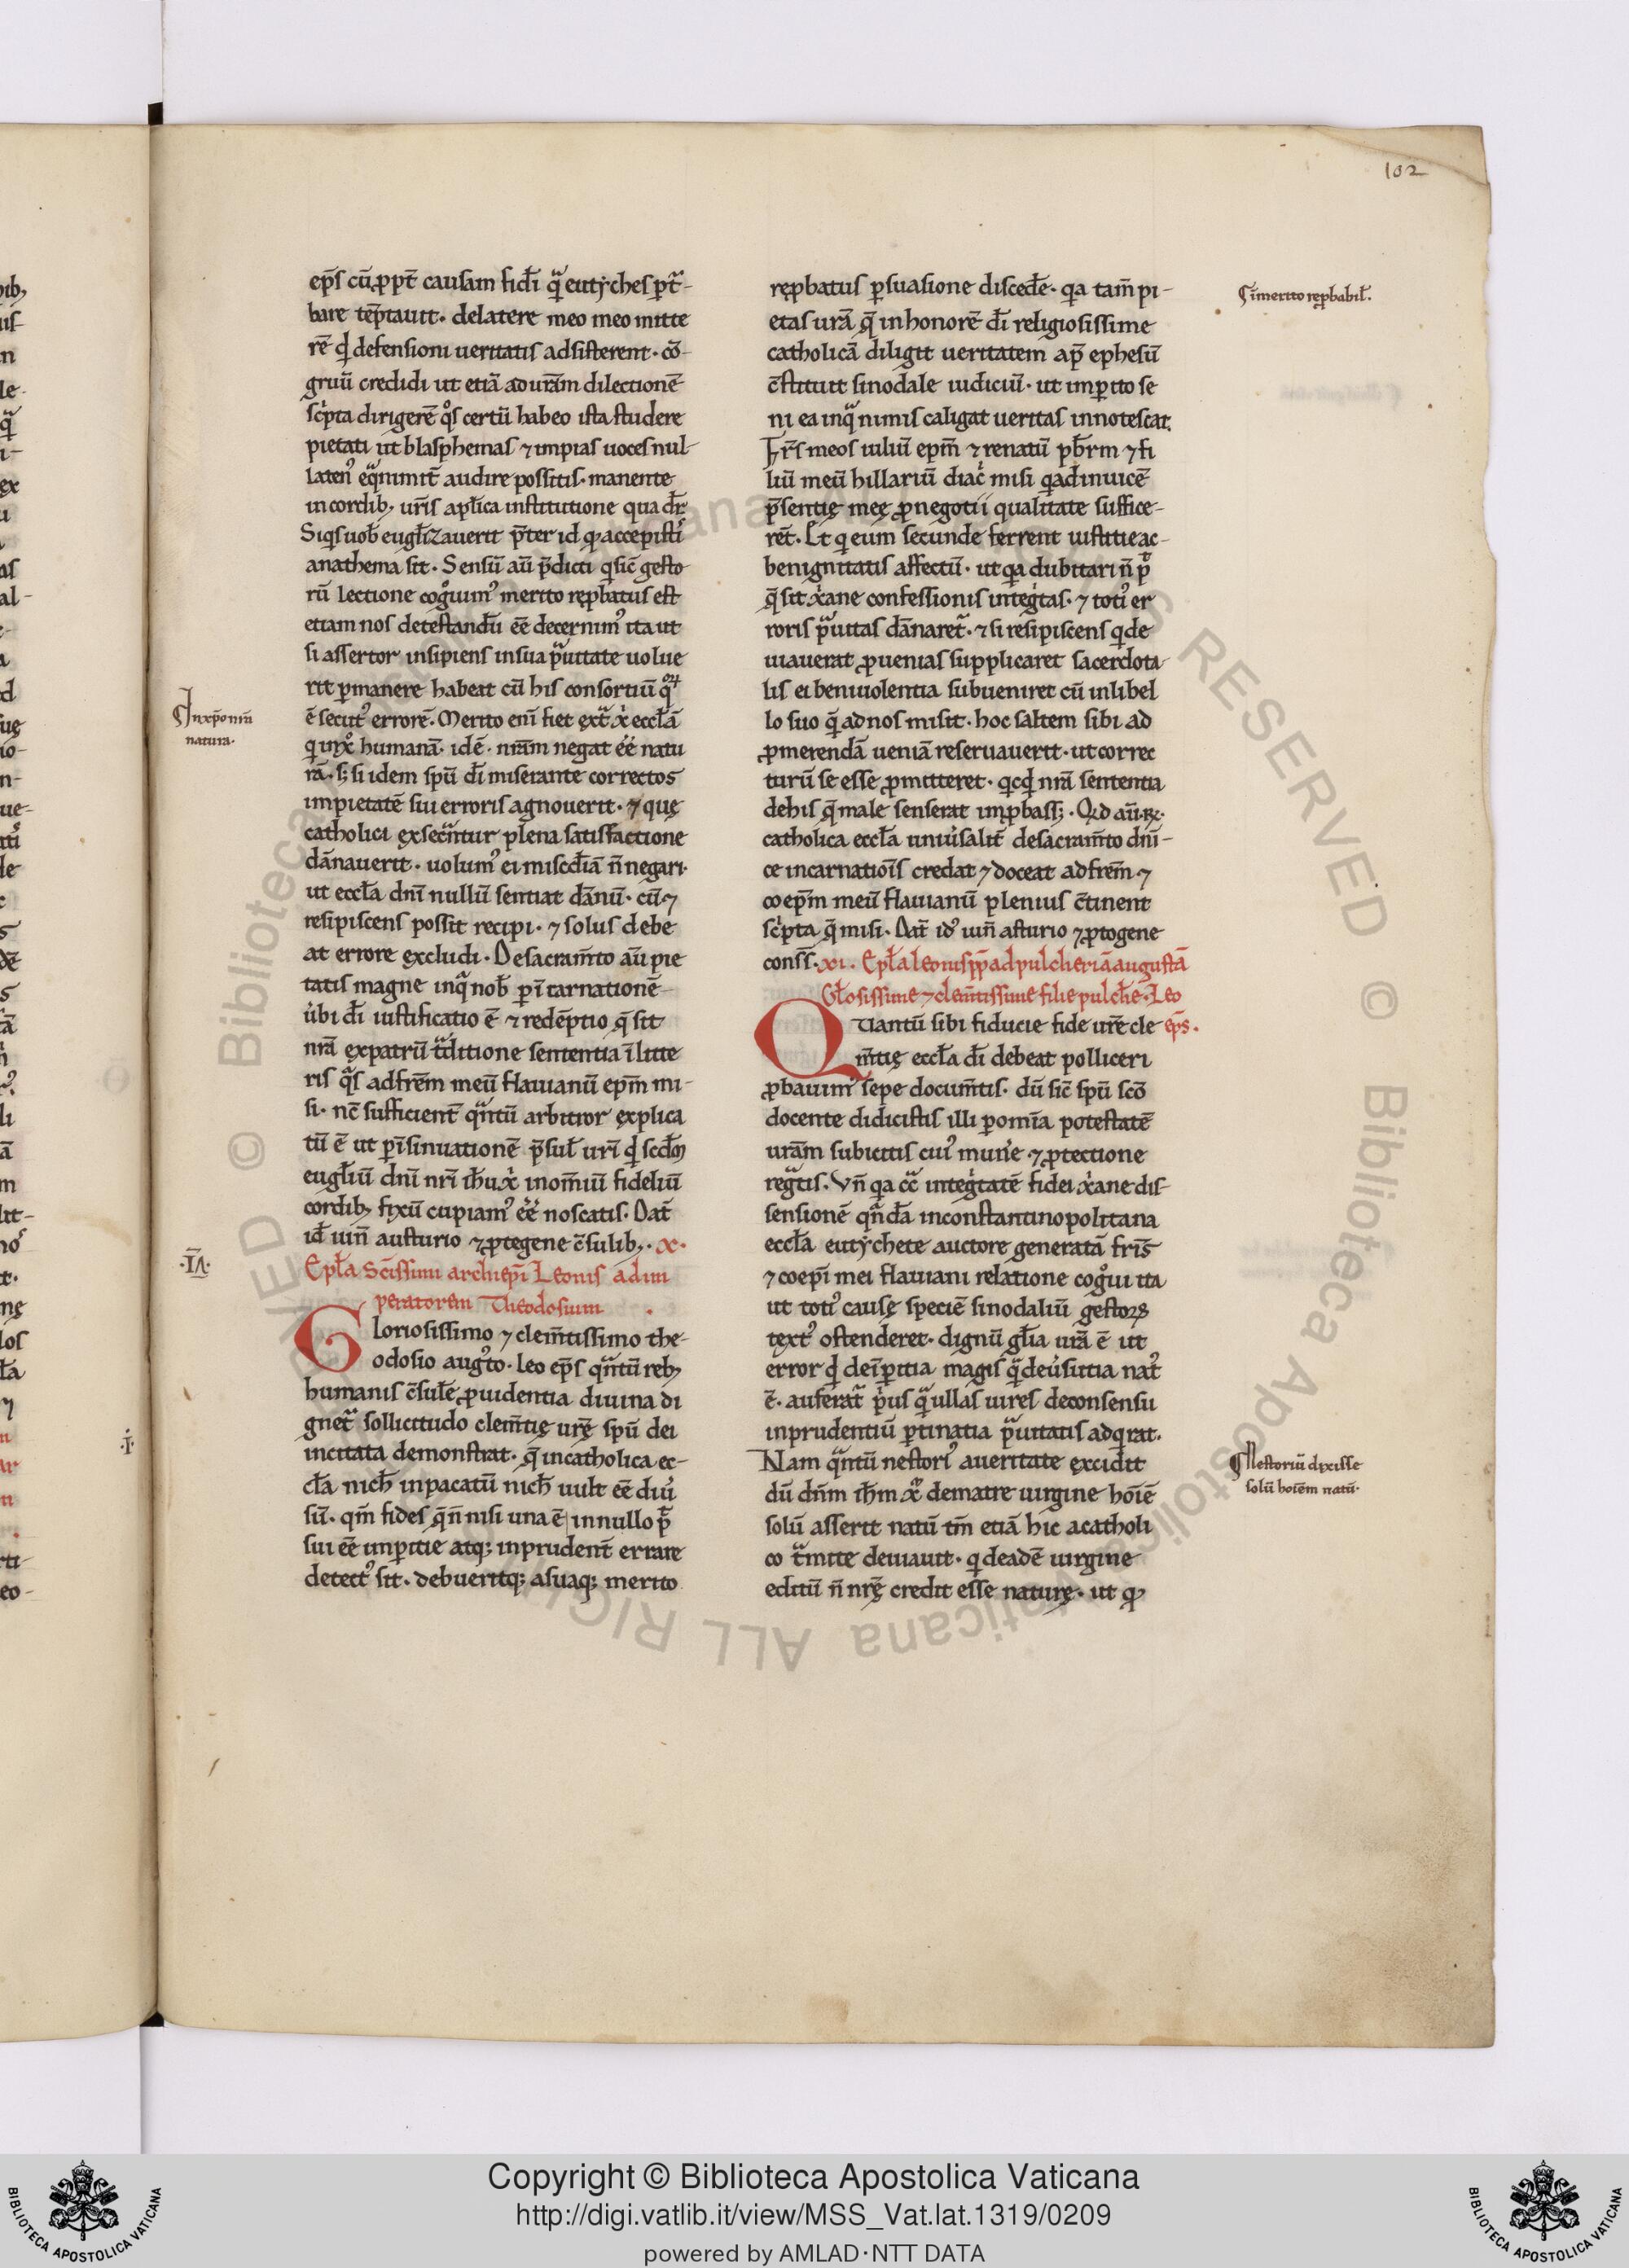 102
ep̄s cū ꝓpt̄ causam fidei q̄ eutyches pt̄-
bare tēptauit. delatere meo meo mitte
rē qd defensioni ueritatis adsisterent. cō-
gruū credidi ut etiā ad urām dilectionē
sc̔pta dirigerē qo̔s certū habeo ista studere
pietati ut blasphemas ⁊ impias uoces nul
laten᾿ eq̄nimit̄ audire possitis. manente
in cordib; ur̄is apl̄ica institutione qua dr̄
Siqs uob̄ eugl̄izauerit p̄ter id qd accepisti
anathema sit. Sensū aū p̄dicti q sic̄ gesto
rū lectione cogouim᾿ merito rep̱batus est
etiam nos detestandū eē decernim᾿ ita ut
si assertor insipiens in sua p̄uitate uolue
rit p̱manere habeat cū his consortiū qoꝝ
ē secut᾿ errorē. Merito eni fiet ext̄ xp̄i eccl̄ā
q in xp̄o humanā. idē. nrām negat eē natu
rā. s; si idem spū di miserante correctos
impietatē sui erroris agnouerit. ⁊ quę
catholici exsecntur plena satisfactione
dānauerit. uolum᾿ ei misc̄dīā n̄ negari.
ut eccl̄a dni nullū sentiat dānū. cū ⁊
resipiscens possit recipi. ⁊ solus debe
at errore excludi. De sacram̄to aū pie
tatis magne inq̄ nob̄ p̱ icarnationē
ubi di iustificatio ē ⁊ redēptio q̄ sit
nrā ex patrū tditione sententia ī litte
ris qs ad frēm meū flauianū epm̄ mi-
si. nc̄ sufficient̄ qntū arbitror explica
tū ē ut p̱ īsinuationē p̄sul̄ uri qd scd̄m
eugl̄iū dni nri ih̄u xp̄i in om̄iū fideliū
cordib; fixū cupiam᾿ eē noscatis. Dat̄
id̄ iun̄ austurio ⁊ ꝓtegene c̄sulib;. x.
Epl̄a Sc̄issimi archiepi Leonis ad im
peratorem Theodosium.
Gloriosissimo ⁊ clem̄tissimo the-
odosio augto. leo ep̄s qntū reb;
humanis c̄sul̄e ꝓuidentia diuina di
gnet̄ sollicitudo clem̄tię urę̄ spū dei
incitata demonstrat. q̄ in catholica ec-
cl̄a nich̄ inpacatū nich̄ uult eē diu̔
sū. qm̄ fides q̄ n̄ nisi una ē in nullo p̄
sui eē imp̱itie atq; inprudent̄ errare
detect᾿ sit. debueritq; a suaq; merito
rep̱batus p̱suasione discede. qa tam̄ pi-
etas urā q̄ in honorē di religiosissime
catholicā diligit ueritatem ap̄ ephesū
c̄stituit sinodale iudiciū. ut imp̱ito se
ni ea in q̄ nimis caligat ueritas innotescat.
Fr̄s meos iuliū epm̄ ⁊ renatū pb̄rm ⁊ fi
liū meū hillariū diac̄ misi q ad inuicē
p̄sentię meę ꝓ negotii qualitate suffice-
rēt. Et q eum secunde ferrent iustitie ac-
benignitatis affectū. ut qa dubitari n̄ p̄
q̄ sit xp̄iane confessionis integtas. ⁊ toti᾿ er
roris p̄uitas dānaret̄. ⁊ si resipiscens q de
uiauerat ꝓ uenias supplicaret sacerdota
lis ei beniuolentia subueniret cū in libel
lo suo q̄ ad nos misit. hoc saltem sibi ad
ꝓmerendā ueniā reseruauerit. ut correc
turū se esse ꝓmitteret. qcqd nrā sententia
de his q̄ male senserat imp̱bass;. Qd aū.ꝶ.
catholica eccl̄a uniu̔salit̄ de sacram̄to dni-
ce incarnatiōis credat ⁊ doceat ad frem̄ ⁊
coepm̄ meū flauianū plenius c̄tinent
sc̔pta q̄ misi. Dat̄ id᾿ iun̄ asturio ⁊ ꝓtogene
conss̄. xi. Epl̄a leonis pp̄ ad pulcheriā augustā
Gl̄osissime ⁊ clem̄tissime filie pulch̄e. Leo
Quantū sibi fiducie fide ure cle ep̄s.
m̄tię eccl̄a di debeat polliceri
ꝓbauim᾿ sepe docum̄tis. dū sic̄ spū scō
docente didicistis illi p̱ om̄ia potestatē
urām subicitis cui᾿ mune ⁊ ꝓtectione
regtis. Vn̄ qa cc̄ integtatē fidei xp̄iane dis-
sensionē qndā in constantinopolitana
eccl̄a eutychete auctore generatā fr̄is
⁊ coepi mei flauiani relatione cogoui ita
ut toti᾿ causę speciē sinodaliū gestoꝝ
text᾿ ostenderet. dignū gl̄ia urā ē ut
error qd de īp̱itia magis q̄ de u̔sutia nat᾿
ē. auferat̄ p̔us q̄ ullas uires de consensu
inprudentiū p̱tinatia p̄uitatis adqrat.
Nam qntū nestori᾿ a ueritate excidit
dū dnm̄ ih̄m xp̄m de matre uirgine hoīē
solū asserit natū tm̄ etiā hic a catholi
co tmite deuiauit. q de eadē uirgine
editū n̄ nrę̄ credit esse naturę. ut qd
In xp̄o nrā
natura.
.IΛ.
.i.
Īmerito rep̱babil̄.
Nestoriū dixisse
solū hoīem natū.
Copyright © Biblioteca Apostolica Vaticana
http://digi.vatlib.it/view/MSS_Vat.lat.1319/0209
powered by AMLAD·NTT DATA
BIBLIOTECA APOSTOLICA VATICANA
BIBLIOTECA APOSTOLICA VATICANA
© Biblioteca Apostolica Vaticana ALL RIGHTS RESERVED © Biblioteca Apostolica Vaticana ALL RIGHTS RESERVED